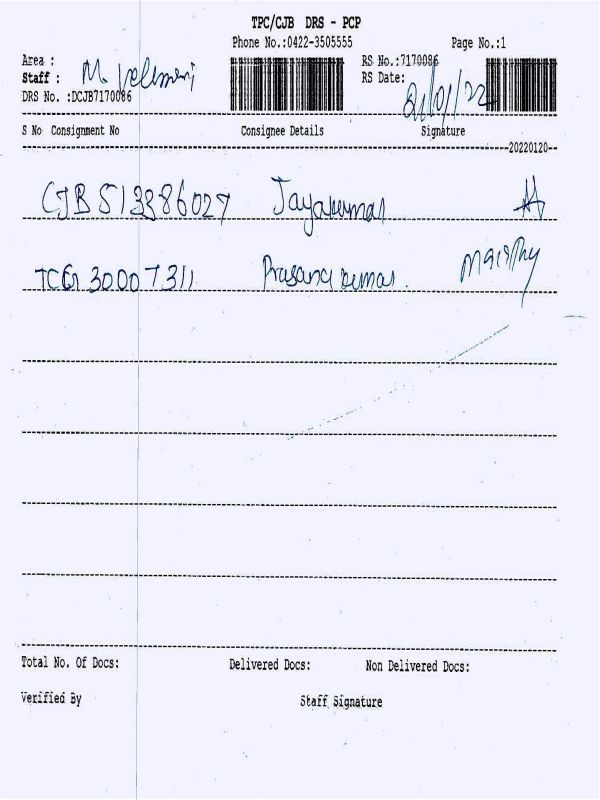 TPC/CJB DRS - PCP
Phone No.:0422-3505555 Page No.:1
Area :
Staff : M. Velumani
DRS No. :DCJB7170086
RS No.:7170086
RS Date: 21/01/22
S No Consignment No Consignee Details Signature
20220120
CJB 513386027 Jayakumar
TCG 30007311 Prasanakumar.
Total No. Of Docs: Delivered Docs: Non Delivered Docs:
Verified By Staff Signature